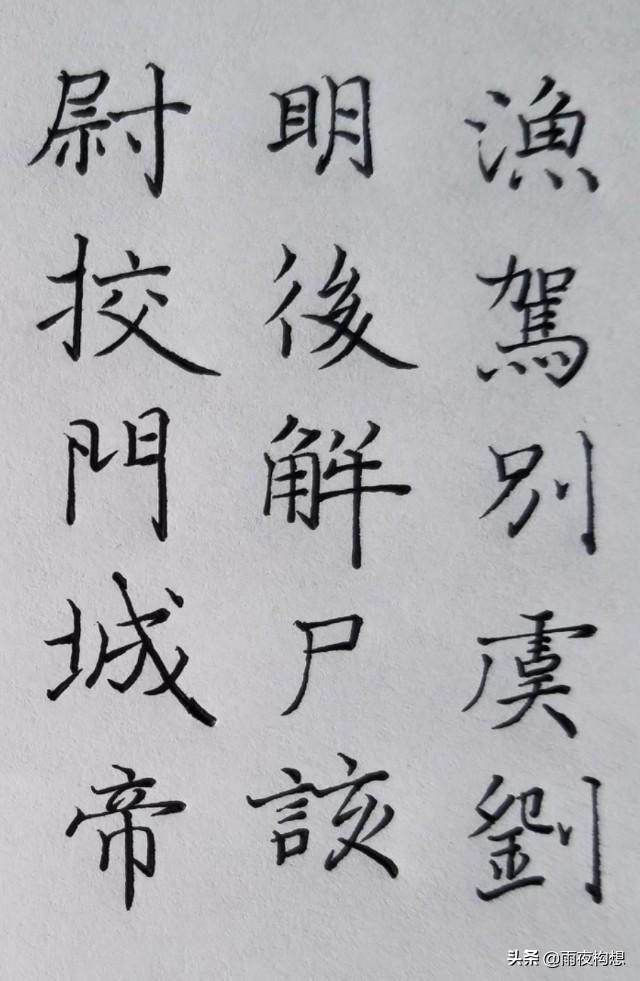 漁駕別虞劉
明後解尸該
尉挍門城帝
头条 @雨夜构想